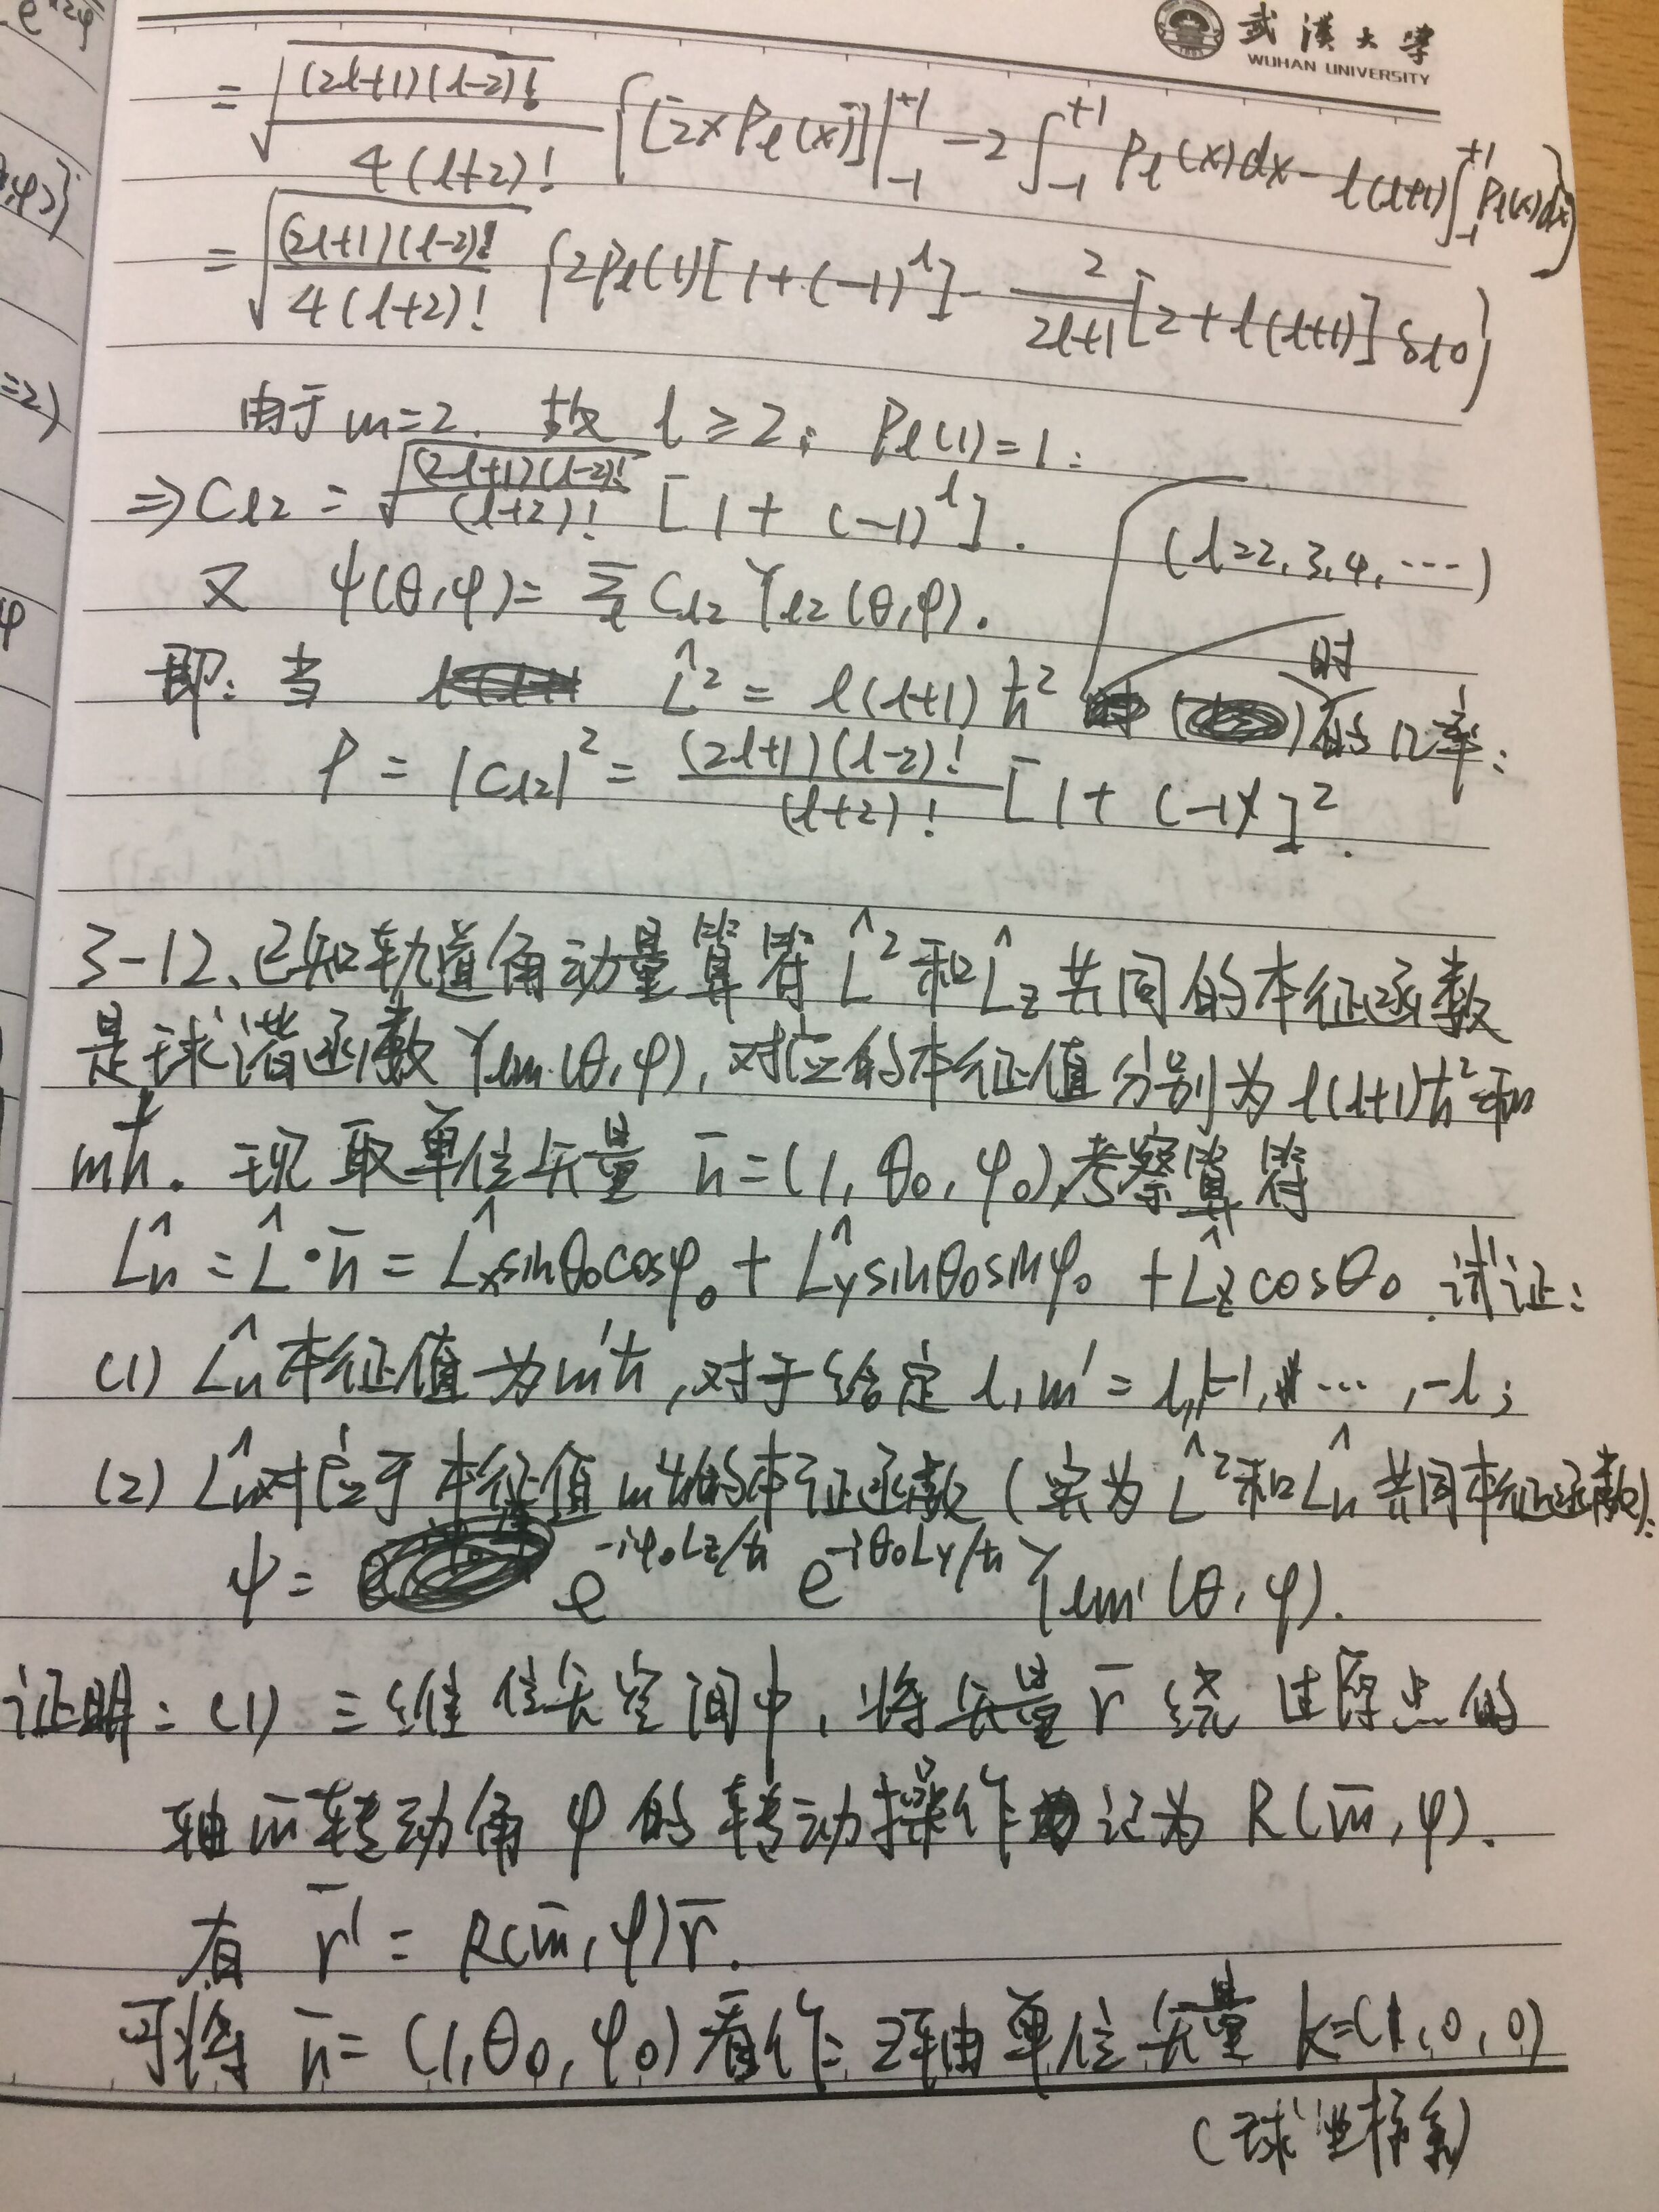 武漢大學
WUHAN UNIVERSITY
= √((2l+1)(l-2)!/4(l+2)!) {[2xPl(x)]|₋₁⁺¹ - 2∫₋₁⁺¹ Pl(x)dx - l(l+1)∫₋₁⁺¹ Pl(x)dx}
= √((2l+1)(l-2)!/4(l+2)!) {2Pl(1)[1+(-1)^l] - 2/(2l+1) [2+l(l+1)] δl0}
由于 m=2. 故 l ≥ 2; Pl(1)=1.
⇒ Cl2 = √((2l+1)(l-2)!/(l+2)!) [1+(-1)^l].
(l=2,3,4,…)
又 ψ(θ,φ) = Σl Cl2 Yl2(θ,φ).
即: 当 L̂² = l(l+1)ħ² 时的几率:
P = |Cl2|² = (2l+1)(l-2)!/(l+2)! [1+(-1)^l]².
3-12、已知轨道角动量算符 L̂² 和 L̂z 共同的本征函数
是球谐函数 Ylm(θ,φ), 对应的本征值分别为 l(l+1)ħ² 和
mħ. 现取单位矢量 n̄=(1,θ0,φ0), 考察算符
L̂n = L̂·n̄ = L̂x sinθ0cosφ0 + L̂y sinθ0sinφ0 + L̂z cosθ0. 试证:
(1) L̂n 本征值为 m'ħ, 对于给定 l, m' = l, l-1, …, -l;
(2) L̂n 对应于本征值 m'ħ 的本征函数 (实为 L̂² 和 L̂n 共同本征函数):
ψ = e^(-iφ0Lz/ħ) e^(-iθ0Ly/ħ) Ylm'(θ,φ).
证明: (1) 三维位矢空间中, 将矢量 r̄ 绕过原点的
轴 m̄ 转动角 φ 的转动操作记为 R(m̄,φ).
有 r̄' = R(m̄,φ)r̄.
可将 n̄=(1,θ0,φ0) 看作 z轴单位矢量 k=(1,0,0)
(球坐标系)
=2)
φ